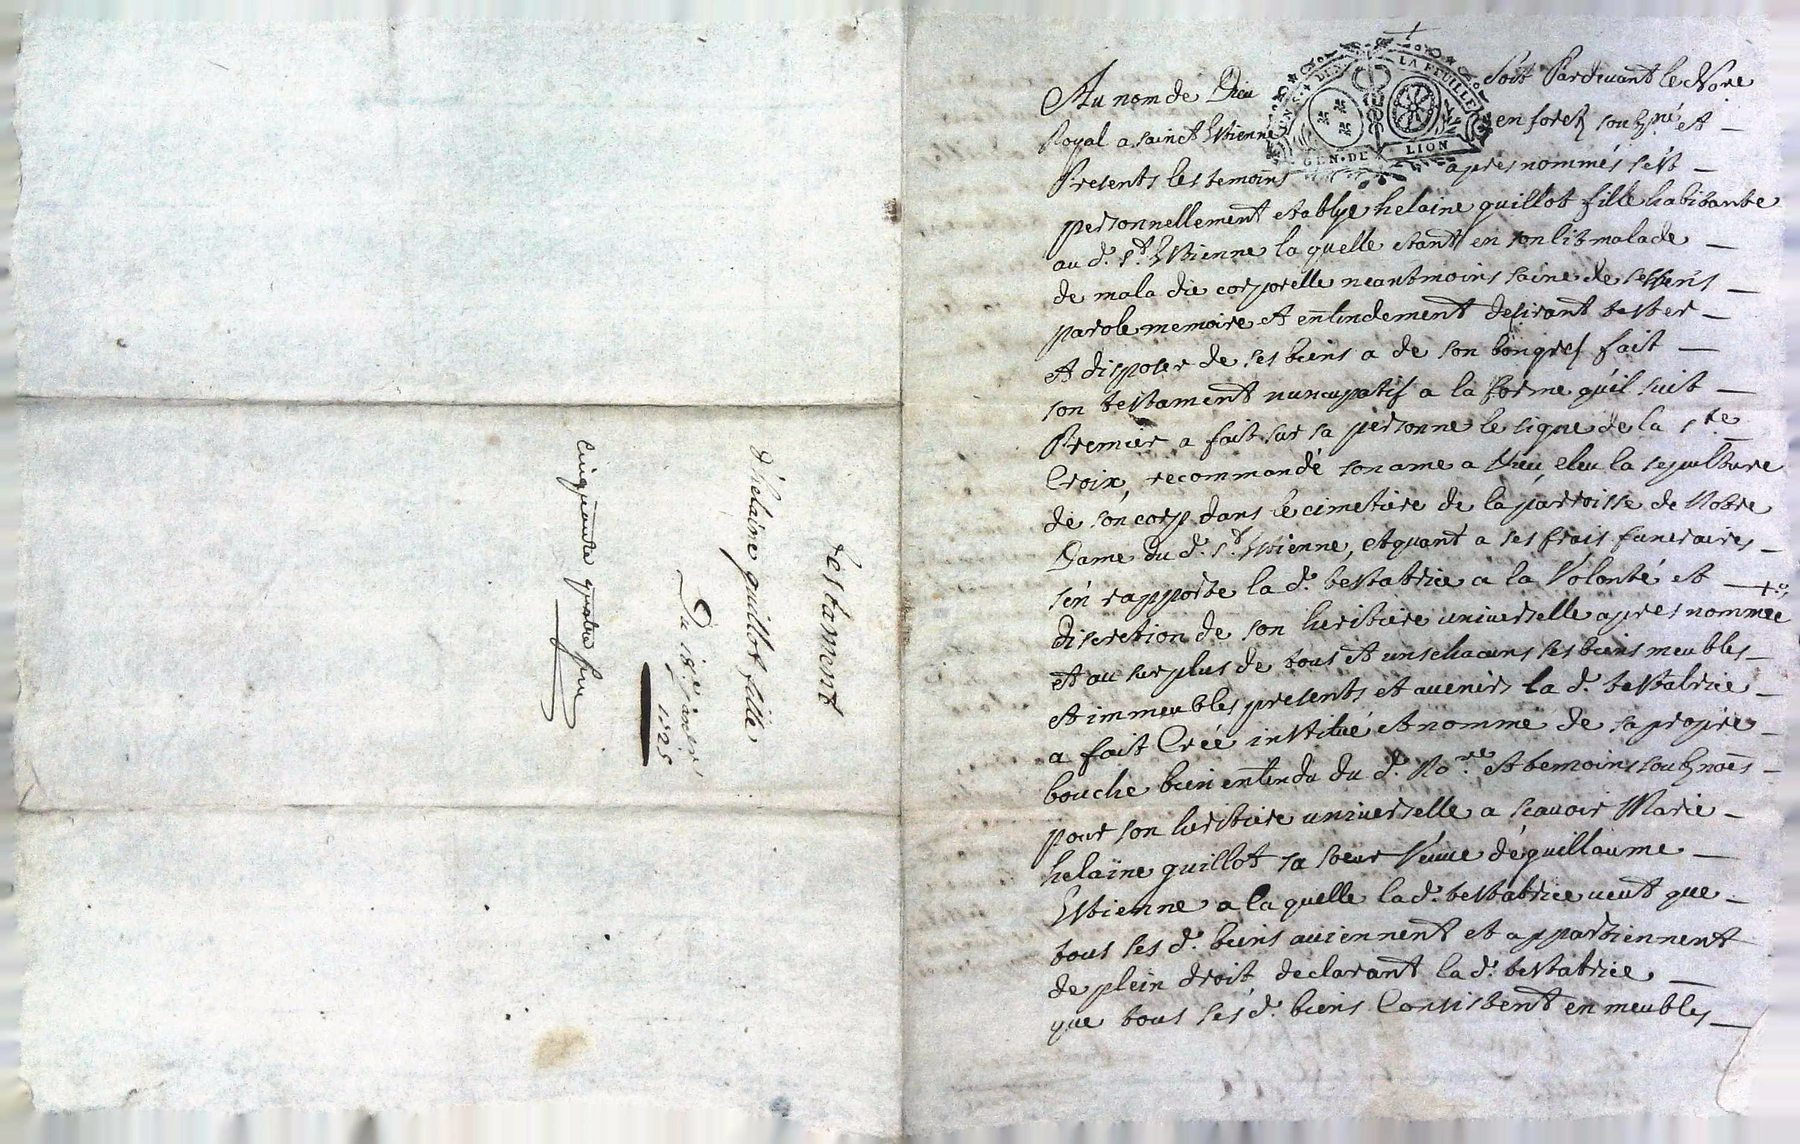 testament
d'helaine guillot fille
Du 18e janvier
1725
Cinquante quatre
Au nom de Dieu soit Pardevant le No're
Royal a sainct Estienne en forez soubz.né et
Presents les temoins apres nommés s'est
personnellement establye helaine guillot fille habitante
au d. St. Estienne laquelle etant en son lit malade
de maladie corporelle neantmoins saine de ses sens
parole memoire et entendement desirant tester
et disposer de ses biens a de son bon grez fait
son testament nuncupatif a la forme qu'il suit
Premier a fait sur sa personne le signe de la ste
Croix, recommandé son ame a Dieu, eleu la sepulture
de son corp dans le cimetiere de la parroisse de Notre
Dame du d. St. Estienne, et quant a ses frais funeraires
s'en rapporte la d. testatrice a la Volonté et
discretion de son heritiere universelle apres nommée
et au surplus de tous et uns chacuns ses biens meubles
et immeubles presents et avenir la d. testatrice
a fait Créé institué et nommé de sa propre
bouche bien entendu du d. No.re et temoins soubznoés
pour son heritiere universelle a scavoir Marie
helaine guillot sa soeur Veuve de guillaume
Estienne a laquelle la d. testatrice veut que
tous ses d. biens aviennent et appartiennent
de plein droit declarant la d. testatrice
que tous ses d. biens Consistent en meubles
GEN. DE LION
LA FEUILLE